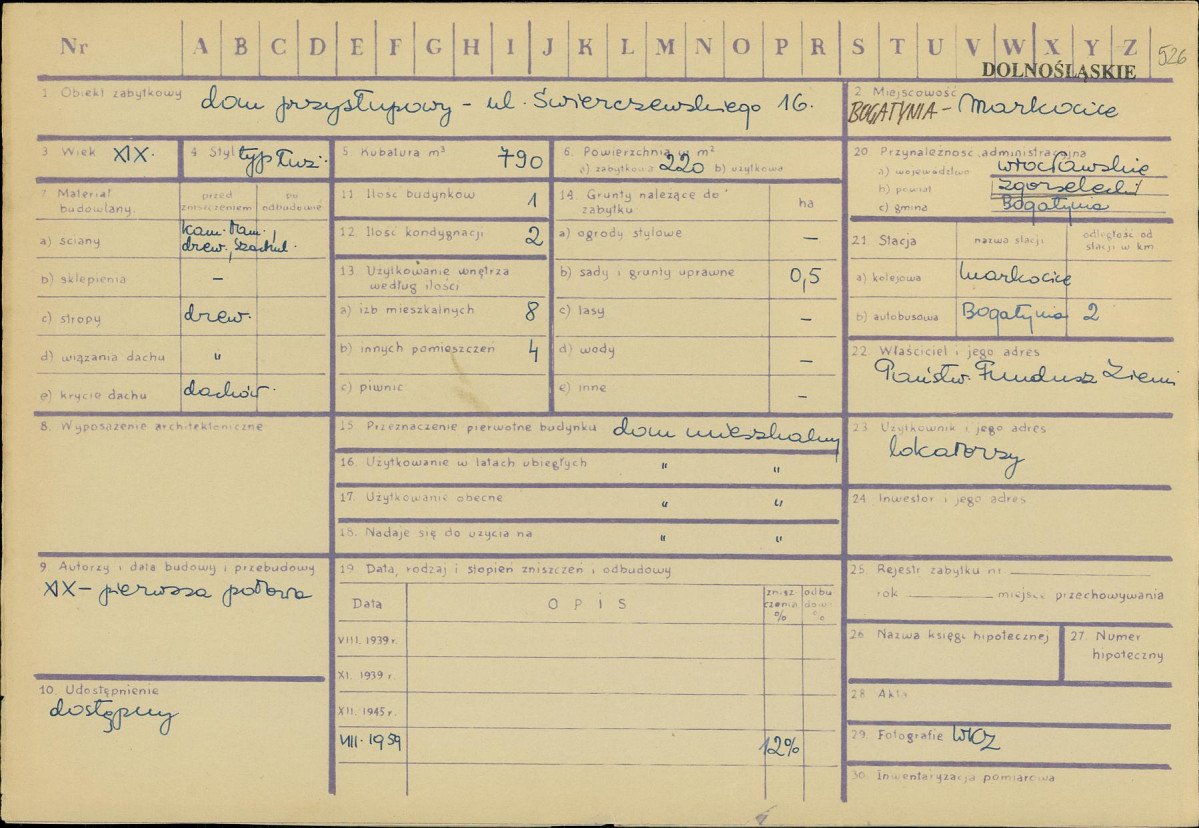 Nr A B C D E F G H I J K L M N O P R S T U V W X Y Z
526
DOLNOŚLĄSKIE
1. Obiekt zabytkowy dom przysłupowy - ul. Świerczewskiego 16.
2 Miejscowość
BOGATYNIA - Markocice
3. Wiek XIX.
4. Styl typ łuż.
5. Kubatura m³ 790
6. Powierzchnia w m²
a) zabytkowa 220 b) użytkowa
7 Materiał budowlany
przed zniszczeniem
po odbudowie
a) ściany kam. łam., drew., szachul.
b) sklepienia –
c) stropy drew.
d) wiązania dachu "
e) krycie dachu dachów.
8. Wyposażenie architektoniczne
9. Autorzy i data budowy i przebudowy
XIX – pierwsza połowa
10. Udostępnienie
dostępny
11 Ilość budynków 1
12. Ilość kondygnacji 2
13. Użytkowanie wnętrza
według ilości
a) izb mieszkalnych 8
b) innych pomieszczeń 4
c) piwnic
14. Grunty należące do
zabytku
ha
a) ogrody stylowe –
b) sady i grunty uprawne 0,5
c) lasy –
d) wody –
e) inne –
15. Przeznaczenie pierwotne budynku dom mieszkalny
16. Użytkowanie w latach ubiegłych " "
17. Użytkowanie obecne " "
18. Nadaje się do użycia na " "
19 Data, rodzaj i stopień zniszczeń i odbudowy
Data
OPIS
znisz-
czenia
%
odbu
dowa
%
VIII. 1939 r.
XI. 1939 r.
XII. 1945 r.
VIII. 1959 12%
20. Przynależność administracyjna
a) województwo wrocławskie
b) powiat zgorzelecki
c) gmina Bogatynia
21. Stacja
nazwa stacji
odległość od
stacji w km
a) kolejowa Markocice
b) autobusowa Bogatynia 2
22. Właściciel i jego adres
Państw. Fundusz Ziemi
23. Użytkownik i jego adres
lokatorzy
24. Inwestor i jego adres
25. Rejestr zabytku nr
rok miejsc. przechowywania
26 Nazwa księgi hipotecznej
27. Numer
hipoteczny
28 Akta
29. Fotografie WKZ
30. Inwentaryzacja pomiarowa